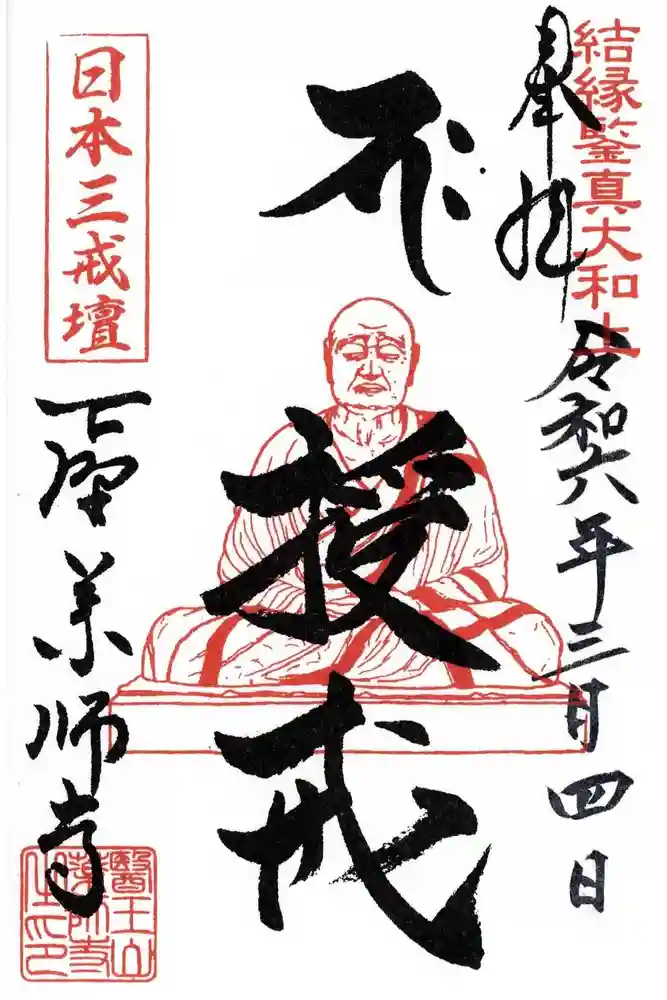 結縁鑒真大和上
奉拝
令和六年三月四日
授戒
日本三戒壇
下野薬師寺
醫王山
藥師寺